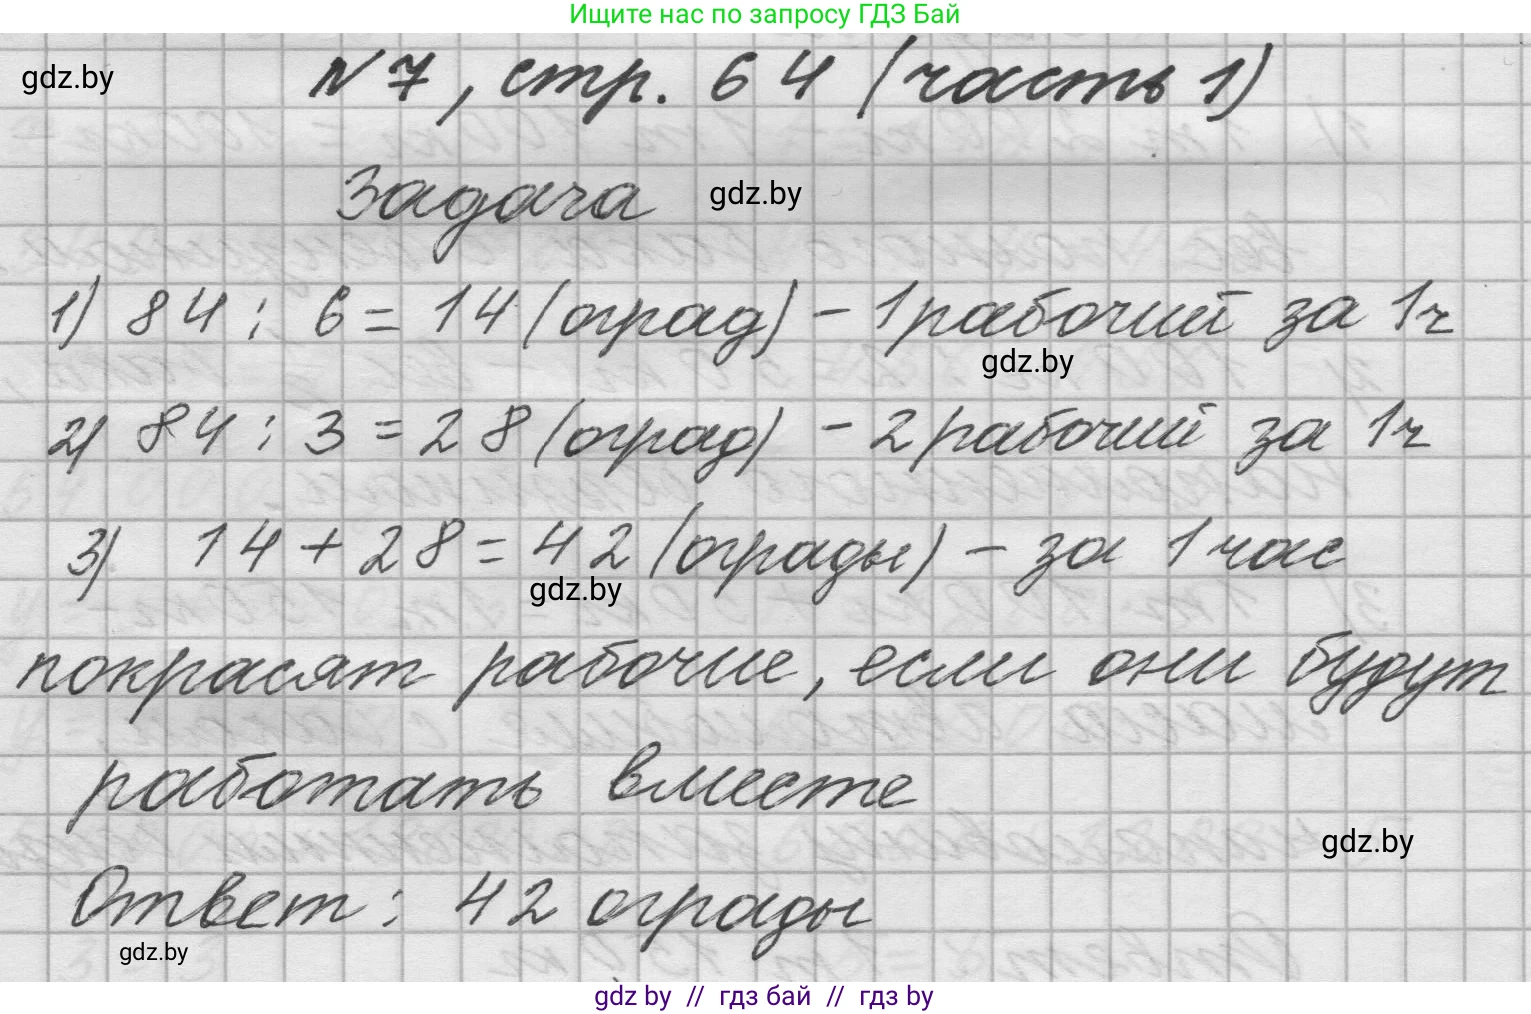 Ищите нас по запросу ГДЗ Бай
gdz.by
№7, стр. 64 (часть 1)
Задача gdz.by
1) 84 : 6 = 14 (оград) - 1 рабочий за 1ч
gdz.by
2) 84 : 3 = 28 (оград) - 2 рабочий за 1ч
3) 14 + 28 = 42 (ограды) - за 1 час
gdz.by
покрасят рабочие, если они будут
работать вместе
gdz.by
Ответ: 42 ограды
gdz.by
gdz by // гдз бай // гдз by